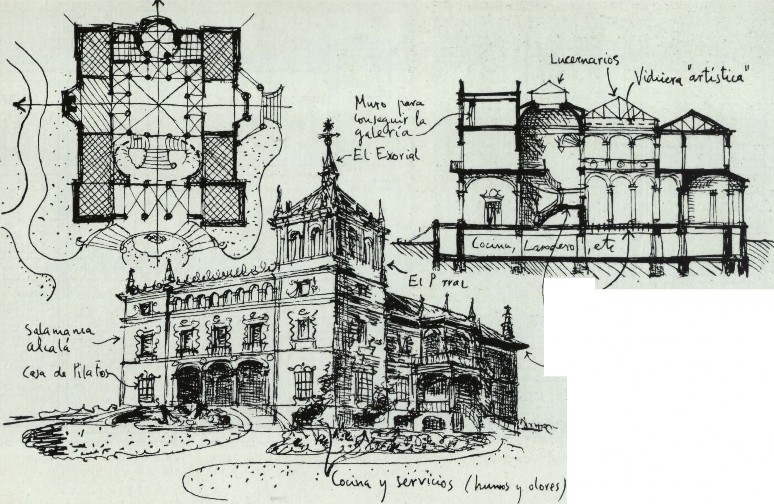 Lucernarios
Vidriera "artística"
Muro para
conseguir la
galería
El Exorial
Cocina, Lavadero, etc
El Prral
Salamanca
alcalá
Casa de Pilatos
Cocina y servicios (humos y olores)